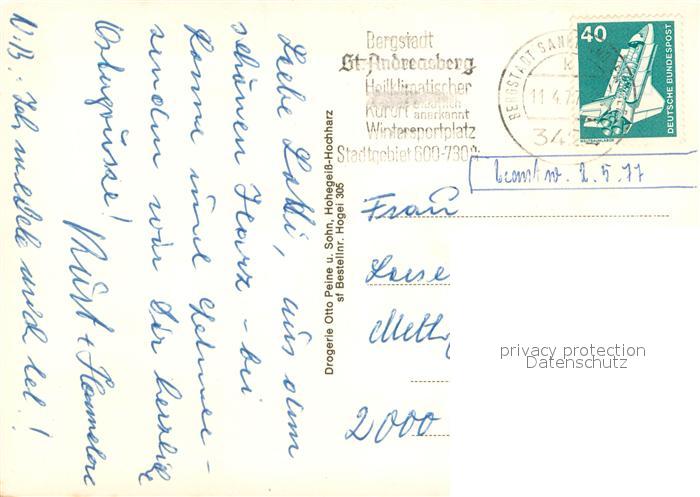 Liebe Lotti, aus dem
schönen Harz - bei
Sonne und Schnee -
senden wir Dir herzliche
Ostergrüsse!
Kurt + Hannelore
N.B.: Ich melde mich tel!
Drogerie Otto Peine u. Sohn, Hohegeiß-Hochharz
sf Bestellnr. Hogei 305
Bergstadt
St. Andreasberg
Heilklimatischer
Kurort staatlich anerkannt
Wintersportplatz
Stadtgebiet 600-730 ü.
BERGSTADT SANKT
11.4.77
342
40
DEUTSCHE BUNDESPOST
WELTRAUMLABOR
beantw. 2.5.77
Frau
2000
privacy protection
Datenschutz